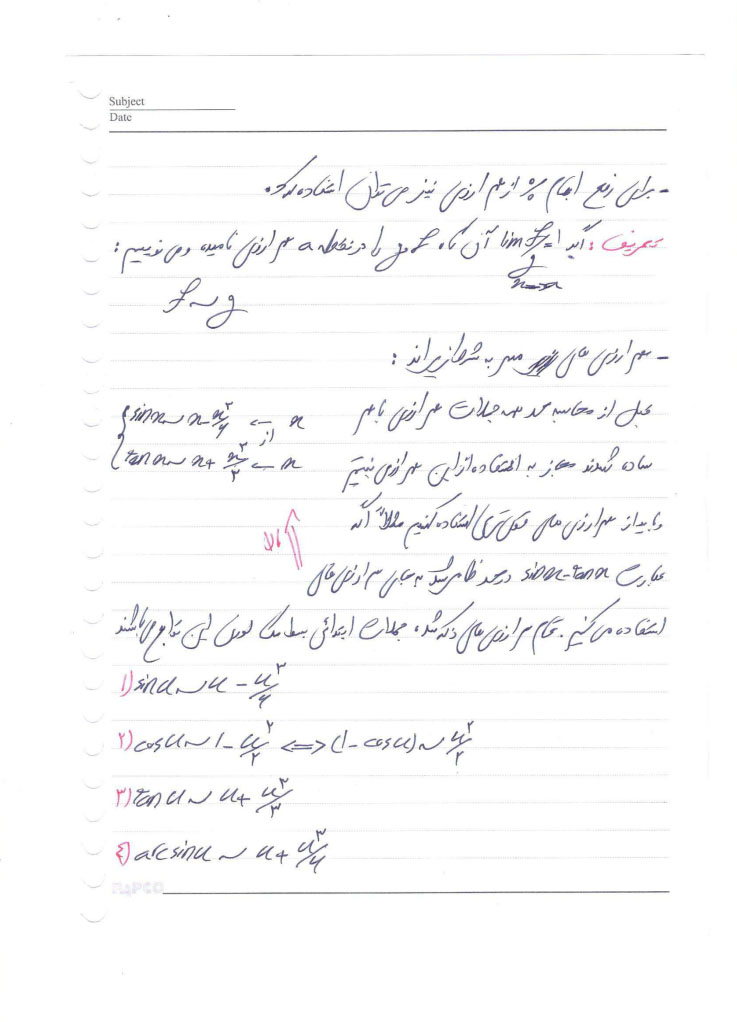 Subject
Date
- برای رفع ابهام %. از هم ارزی نیز می توان استفاده کرد.
تعریف: اگر lim f/g = 1 آن گاه f و g را در نقطه a هم ارزی نامیده و می نویسیم:
x→a
f ~ g
- هم ارزی های مهم به شرح زیراند:
قبل از محاسبه حد همه جملات هم ارزی با هم
{sinx ~ x - x^۳/۶ ← x
ساده شدند مجاز به استفاده از این هم ارزی نیستیم
از
tanx ~ x + x^۳/۳ ← x
و باید از هم ارزی های استفاده کنیم مثلاً اگر
بالا
عبارت sinx-tanx در حد ظاهر شد به جای هم ارزی های
استفاده می کنیم. تمام هم ارزی های ذکر شده جملات ابتدائی بسط مک لورن این توابع می باشند
۱) sinu ~ u - u^۳/۶
۲) cosu ~ 1 - u^۲/۲ ⟺ (1 - cosu) ~ u^۲/۲
۳) tanu ~ u + u^۳/۳
۴) arcsinu ~ u + u^۳/۶
PAPCO